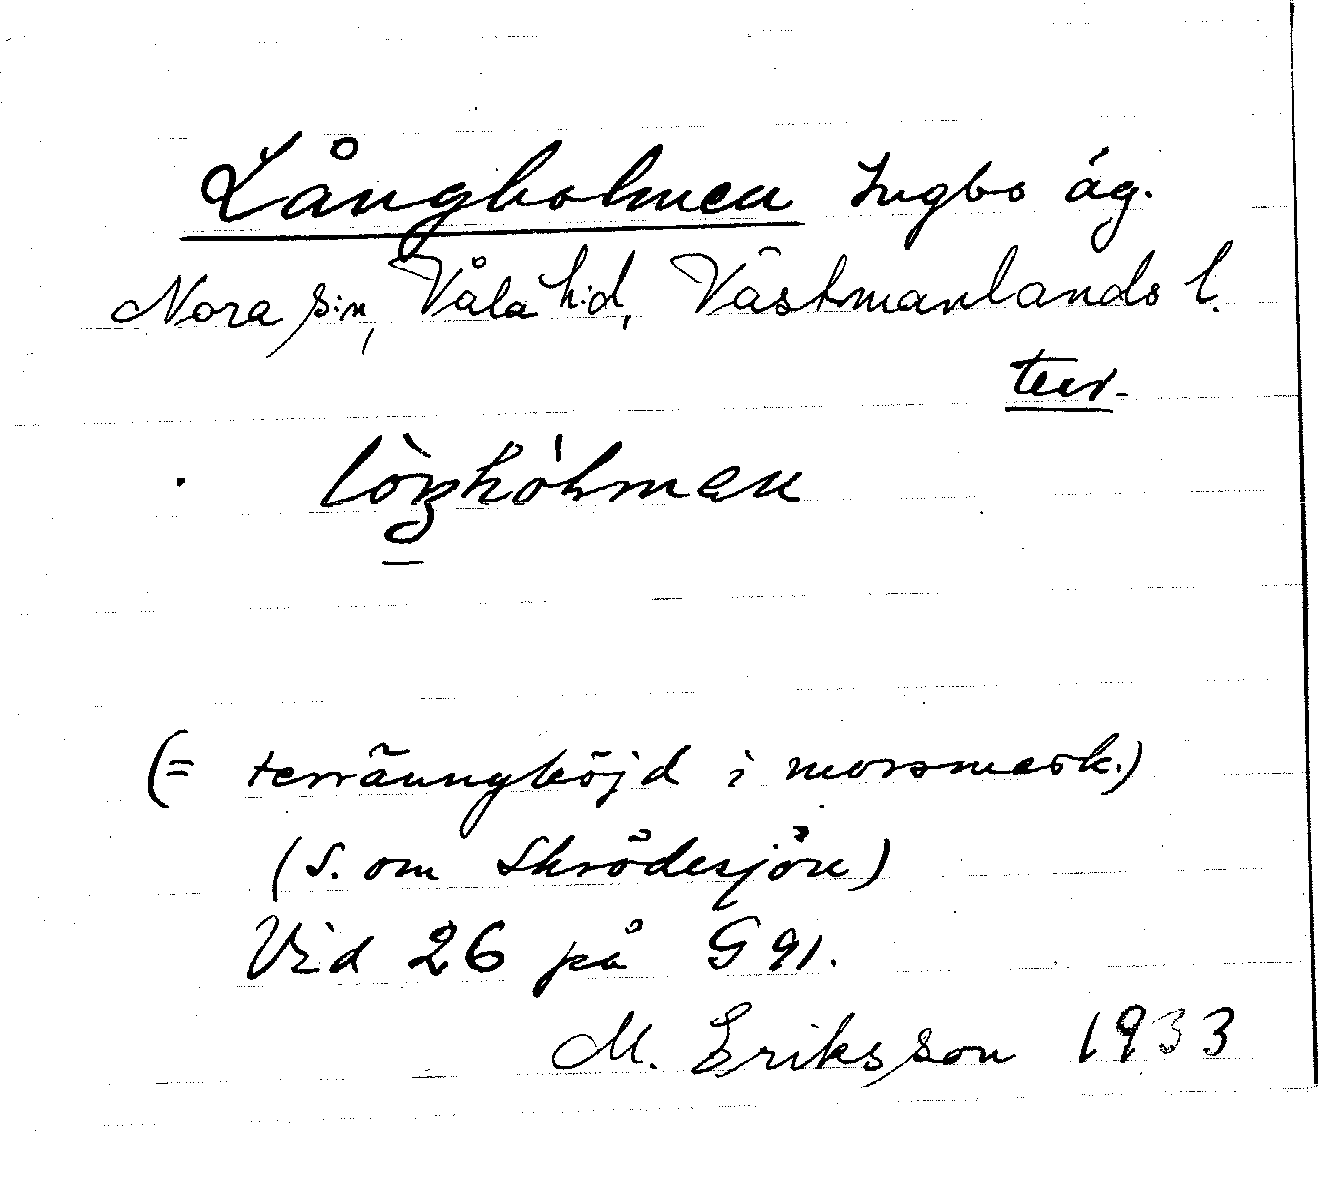 Långholmen Ingbo äg.
Nora s:n, Våla h:d, Västmanlands l.
terr.
(= terränghöjd i morsmark.)
(S. om Skrödesjön)
Vid 26 på G 91.
M. Eriksson 1933